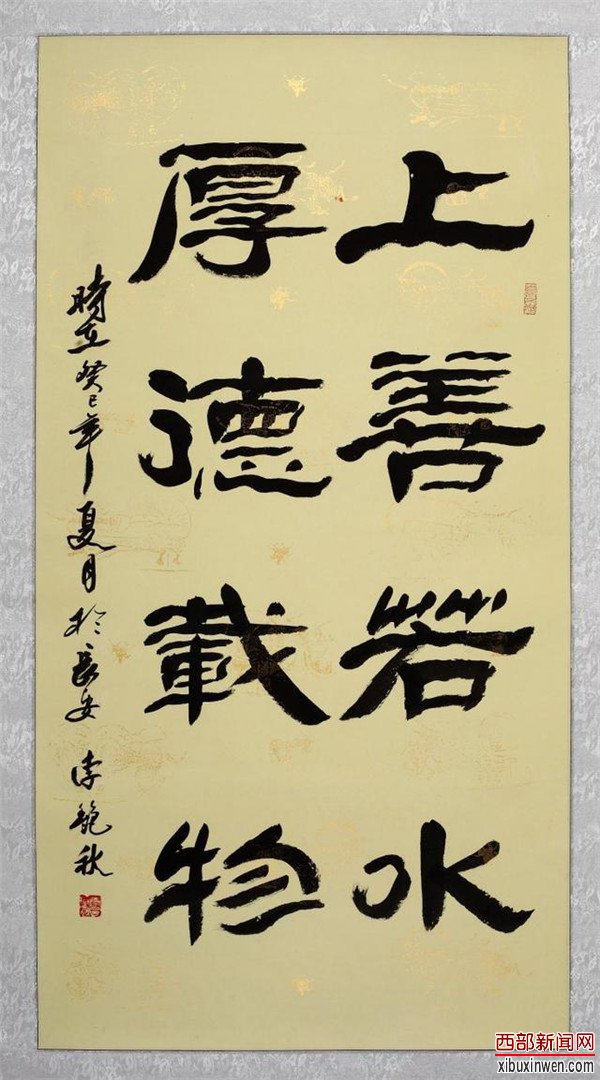 上善若水
厚德載物
時在癸巳年夏月於長安 李艳秋
西部新闻网
xibuxinwen.com